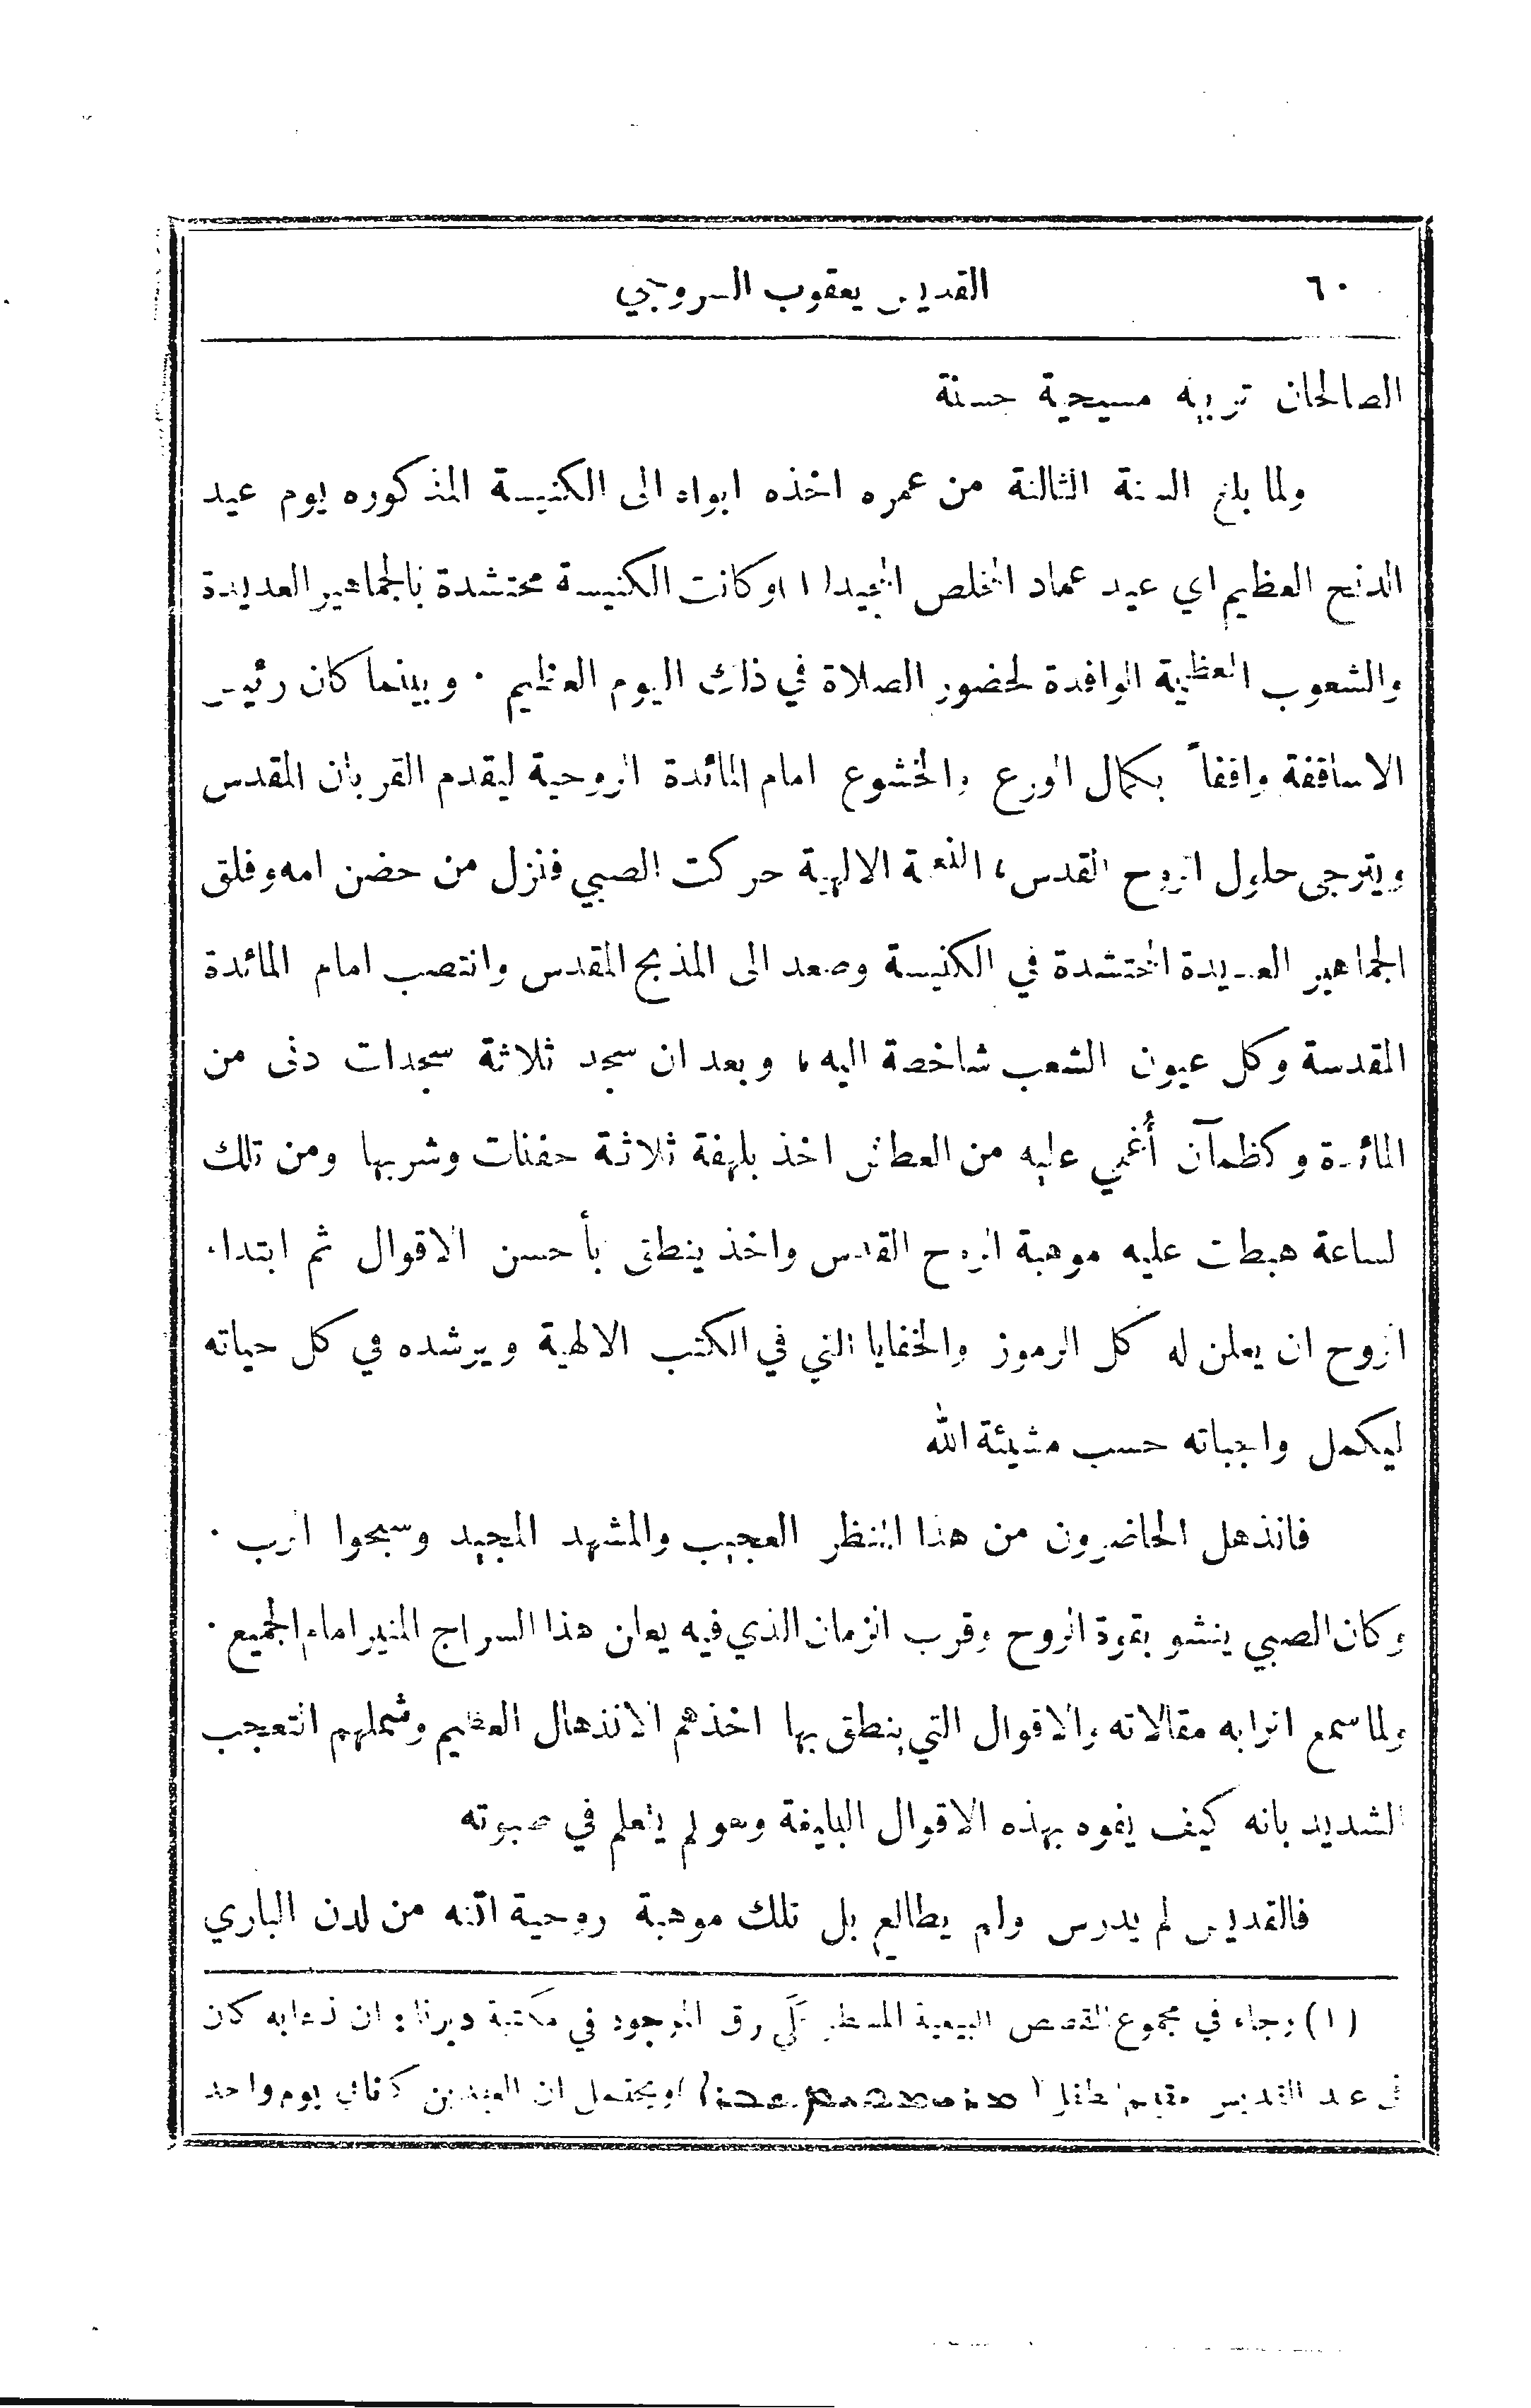 ٦٠
القديس يعقوب السروجي
الصالحان تربيه مسيحية حسنة
ولما بلغ السنة الثالثة من عمره اخذه ابواه الى الكنيسة المذكوره يوم عيد
الدنح العظيم اي عيد عماد المخلص المجيد(١) وكانت الكنيسة محتشدة بالجماهير العديدة
والشعوب العظيمة الوافدة لحضور الصلاة في ذلك اليوم العظيم ٠ وبينما كان رئيس
الاساقفة واقفاً بكمال الورع والخشوع امام المائدة الروحية ليقدم القربان المقدس
ويترجى حلول الروح القدس، النعمة الالهية حركت الصبي فنزل من حضن امه وفلق
الجماهير العديدة المحتشدة في الكنيسة وصعد الى المذبح المقدس وانتصب امام المائدة
المقدسة وكل عيون الشعب شاخصة اليه، وبعد ان سجد ثلاثة سجدات دنى من
المائدة وكظمآن أُغمي عليه من العطش اخذ بلهفة ثلاثة حفنات وشربها ومن تلك
لساعة هبطت عليه موهبة الروح القدس واخذ ينطق بأحسن الاقوال ثم ابتداء
الروح ان يعلن له كل الرموز والخفايا التي في الكتب الالهية ويرشده في كل حياته
ليكمل واجباته حسب مشيئة الله
فانذهل الحاضرون من هذا المنظر العجيب والمشهد المجيد وسبحوا الرب ٠
وكان الصبي ينشو بقوة الروح وقرب الزمان الذي فيه يعلن هذا السراج المنير امام الجميع ٠
ولما سمع اترابه مقالاته والاقوال التي ينطق بها اخذهم الانذهال العظيم وشملهم التعجب
الشديد بانه كيف يفوه بهذه الاقوال البليغة وهو لم يتعلم في صبوته
فالقديس لم يدرس ولم يطالع بل تلك موهبة روحية اتته من لدن الباري
(١) وجاء في مجموع القصص البيعية المسطر على رق الموجود في مكتبة ديرنا: ان ذهابه كان
في عيد القديس ويحتمل ان العيدين كانا في يوم واحد